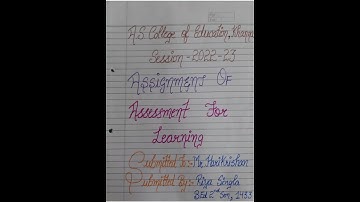 A.S. College of Education, Khanna
Session - 2022-23
Assignment Of
Assessment For
Learning
Submitted To:- Mr. Hari Krishan
Submitted By:- Riya Singla
B.Ed 2nd Sem,